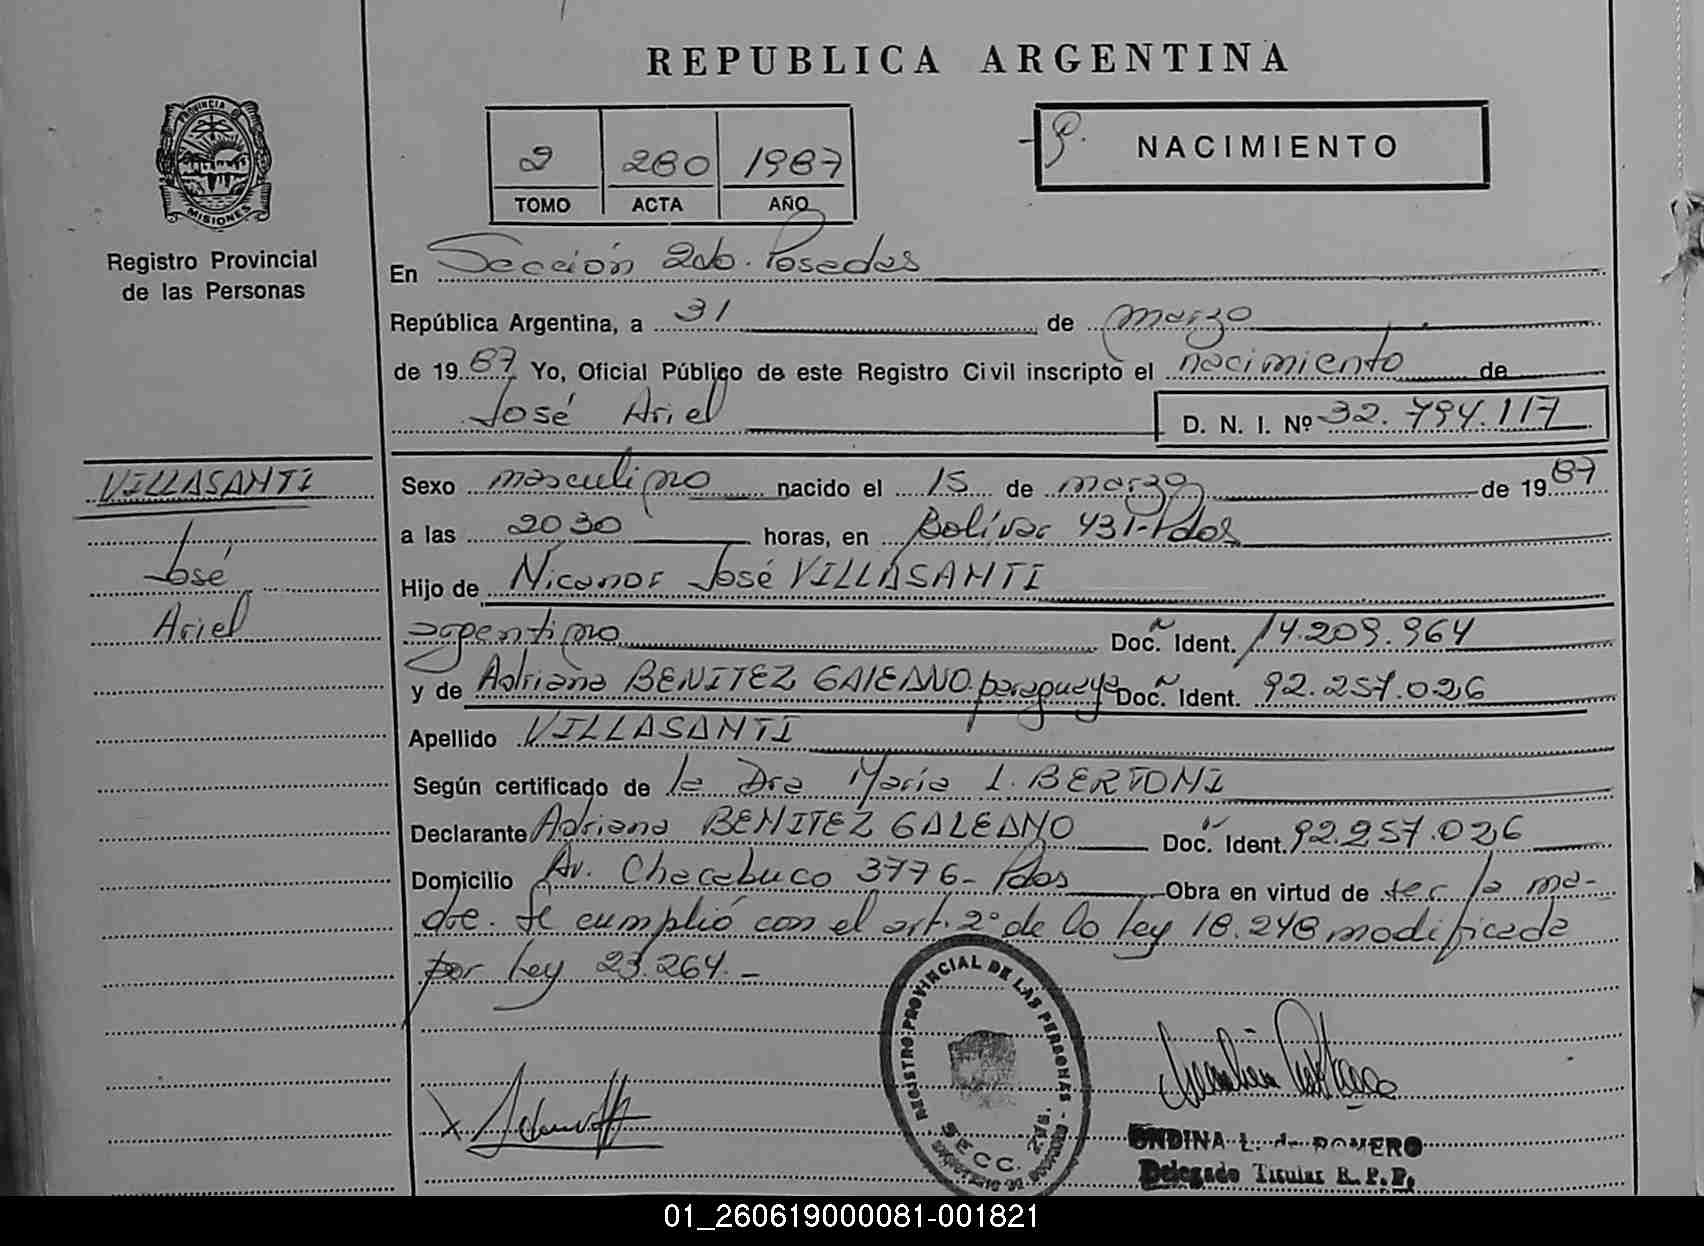 REPUBLICA ARGENTINA
PROVINCIA DE MISIONES
Registro Provincial
de las Personas
2 280 1987
TOMO ACTA AÑO
NACIMIENTO
En Sección 2da. Posadas
República Argentina, a 31 de marzo
de 1987 Yo, Oficial Público de este Registro Civil inscripto el nacimiento de
José Ariel D. N. I. Nº 32.794.117
VILLASANTI
José
Ariel
Sexo masculino nacido el 15 de marzo de 1987
a las 20 30 horas, en Bolívar 431-Pdas
Hijo de Nicanor José VILLASANTI
argentino Doc. Ident. 14.209.964
y de Adriana BENITEZ GALEANO paraguaya Doc. Ident. 92.257.026
Apellido VILLASANTI
Según certificado de la Dra María L. BERTONI
Declarante Adriana BENITEZ GALEANO Doc. Ident. 92.257.026
Domicilio Av. Chacabuco 3776- Pdas Obra en virtud de ser la ma-
dre. Se cumplió con el art. 2º de la ley 18.248 modificada
por ley 23.264.-
REGISTRO PROVINCIAL DE LAS PERSONAS
SECC. 2da.
ONDINA L. de ROMERO
Delegado Titular R. P. P.
01_260619000081-001821